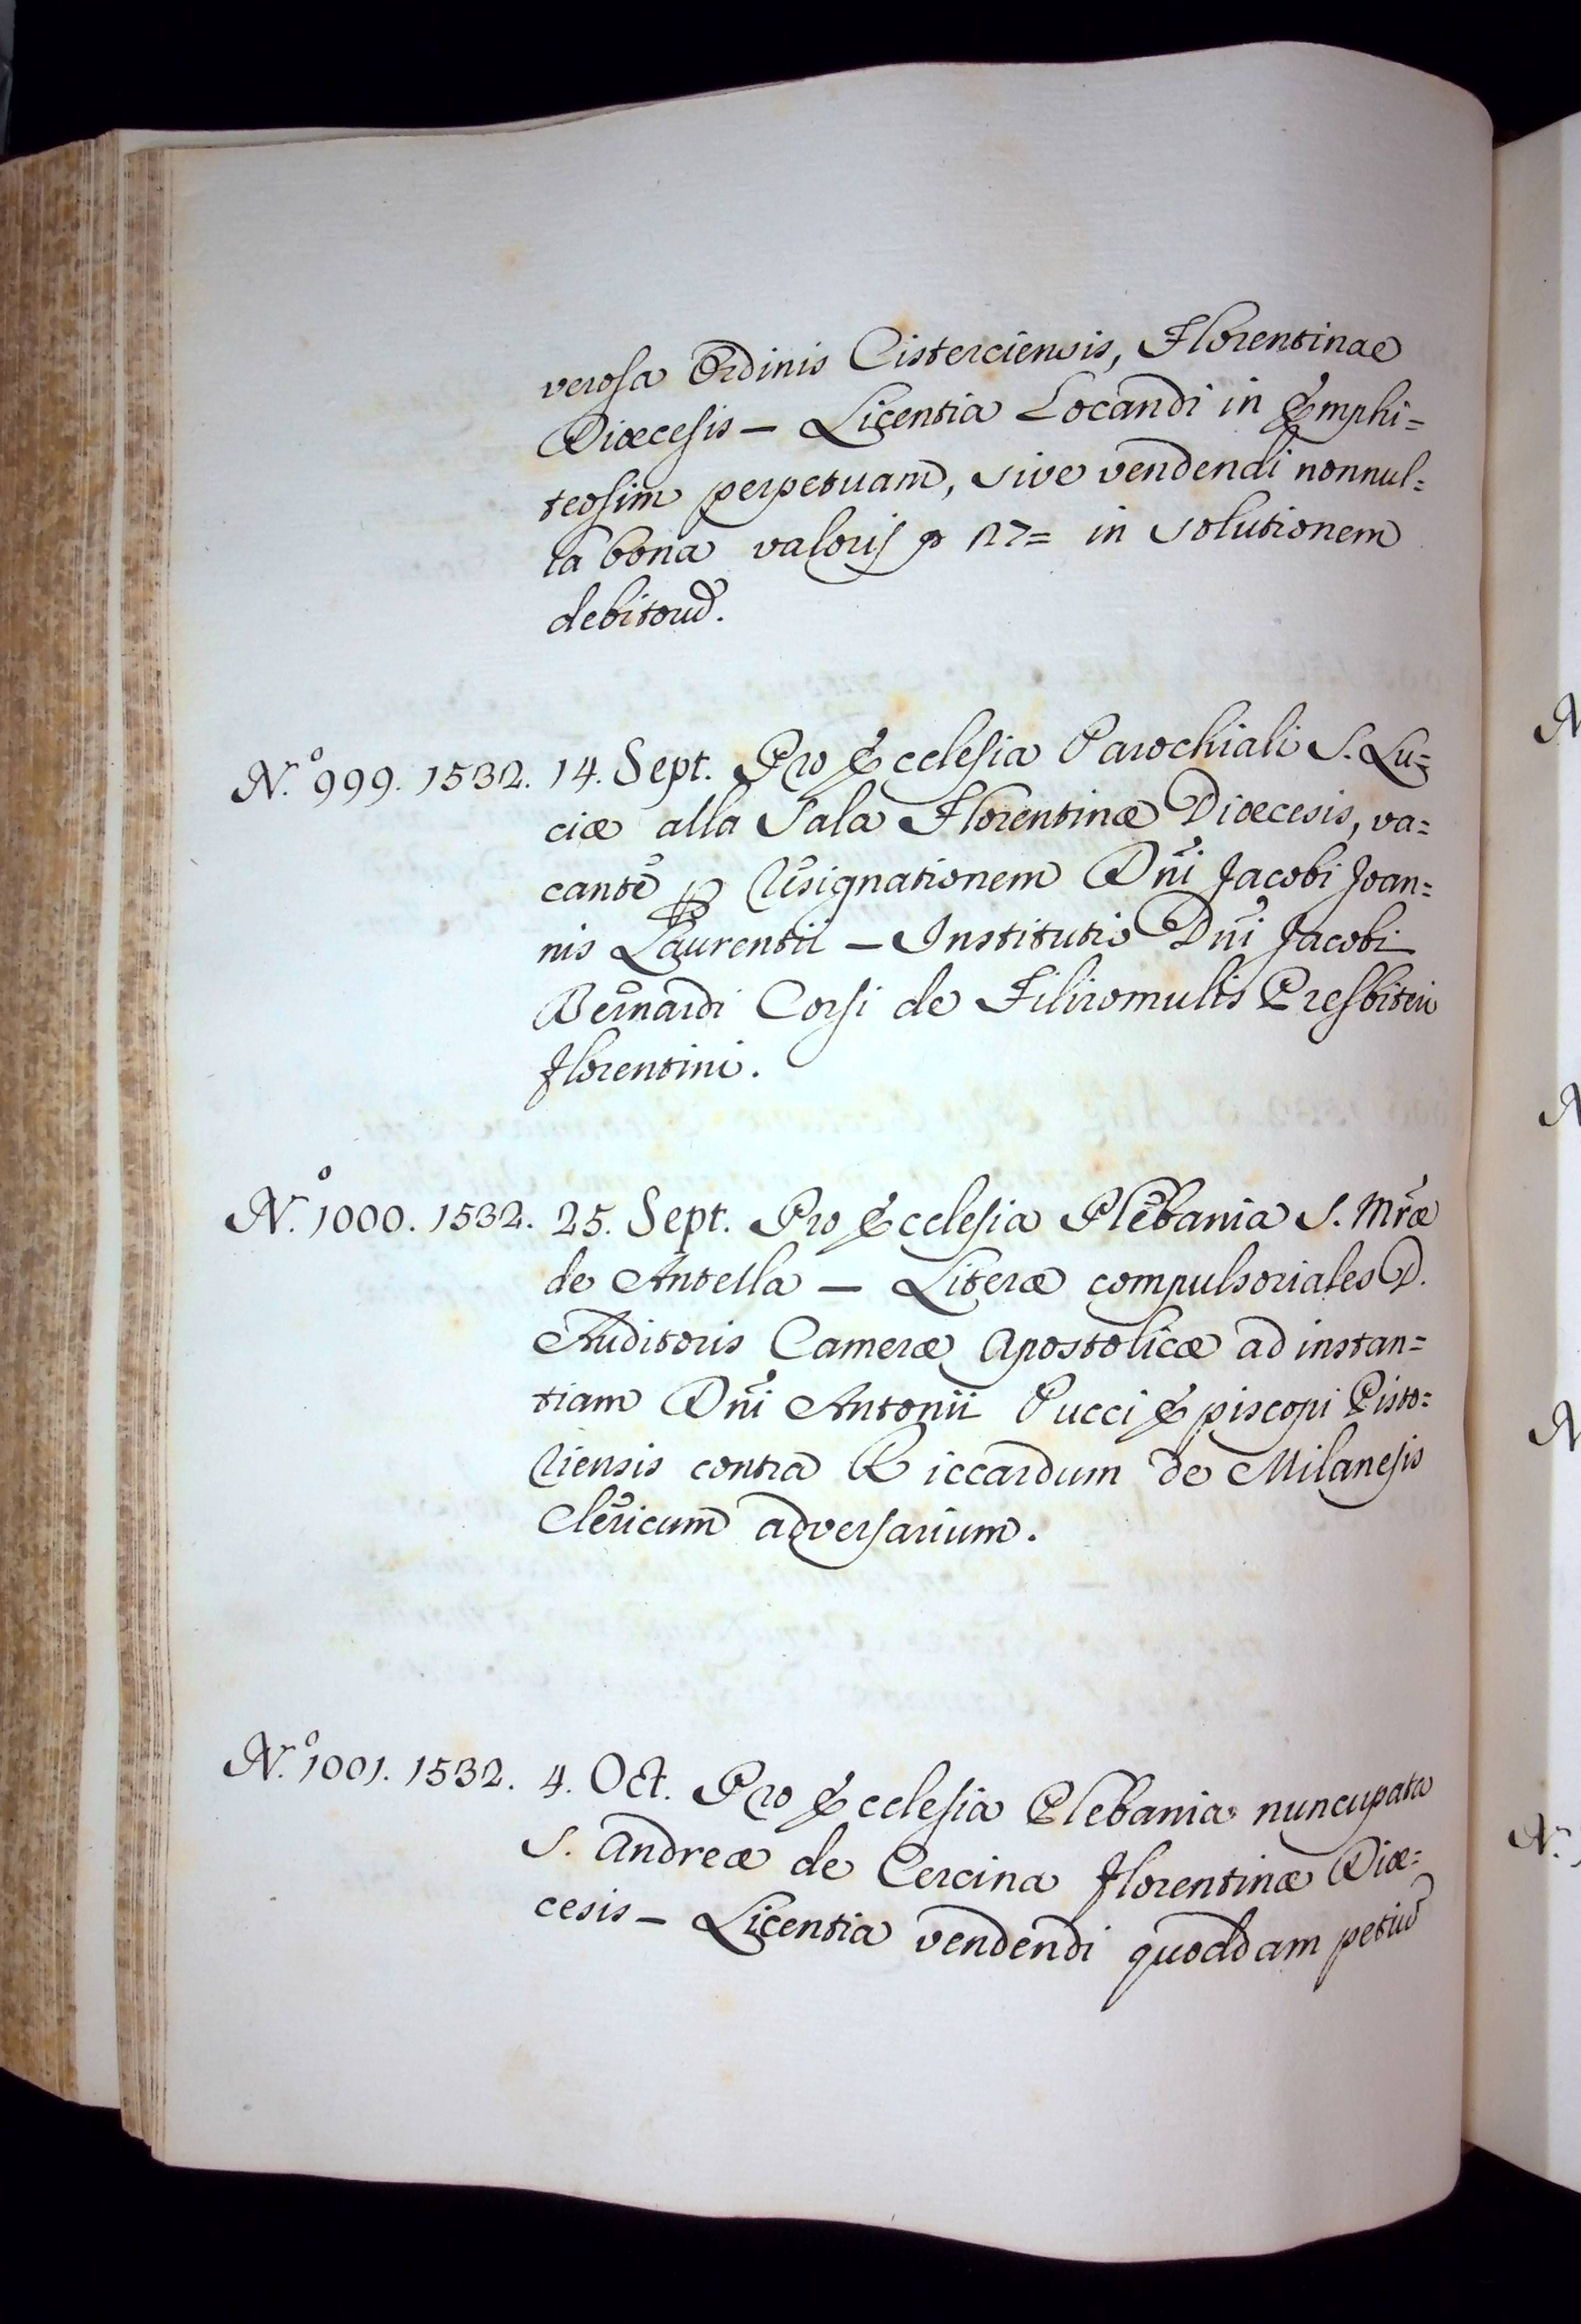 verosa Ordinis Cisterciensis, Florentinae
Diœcesis – Licentia Locandi in Emphi=
teosim perpetuam, sive vendendi nonnul=
la bona valoris in solutionem
debitorū.
N.º 999. 1532. 14. Sept. Pro Ecclesia Parochiali S. Lu=
ciæ alla Sala Florentinæ Diœcesis, va=
cante p Resignationem Dñi Jacobi Joan=
nis Laurentii – Institutio Dñi Jacobi
Bernardi Corsi de Filiromulis Presbiteri
Florentini.
N.º 1000. 1532. 25. Sept. Pro Ecclesia Plebania S. Mr̃æ
de Antella – Literæ compulsoriales D.
Auditoris Cameræ Apostolicæ ad instan=
tiam Dñi Antonii Pucci Episcopi Pisto=
riensis contra Riccardum de Milanesis
Clericum adversarium.
N.º 1001. 1532. 4. Oct. Pro Ecclesia Plebania nuncupata
S. Andreæ de Cercina Florentinæ Diœ=
cesis – Licentia vendendi quoddam petiū
N
N
N
N.